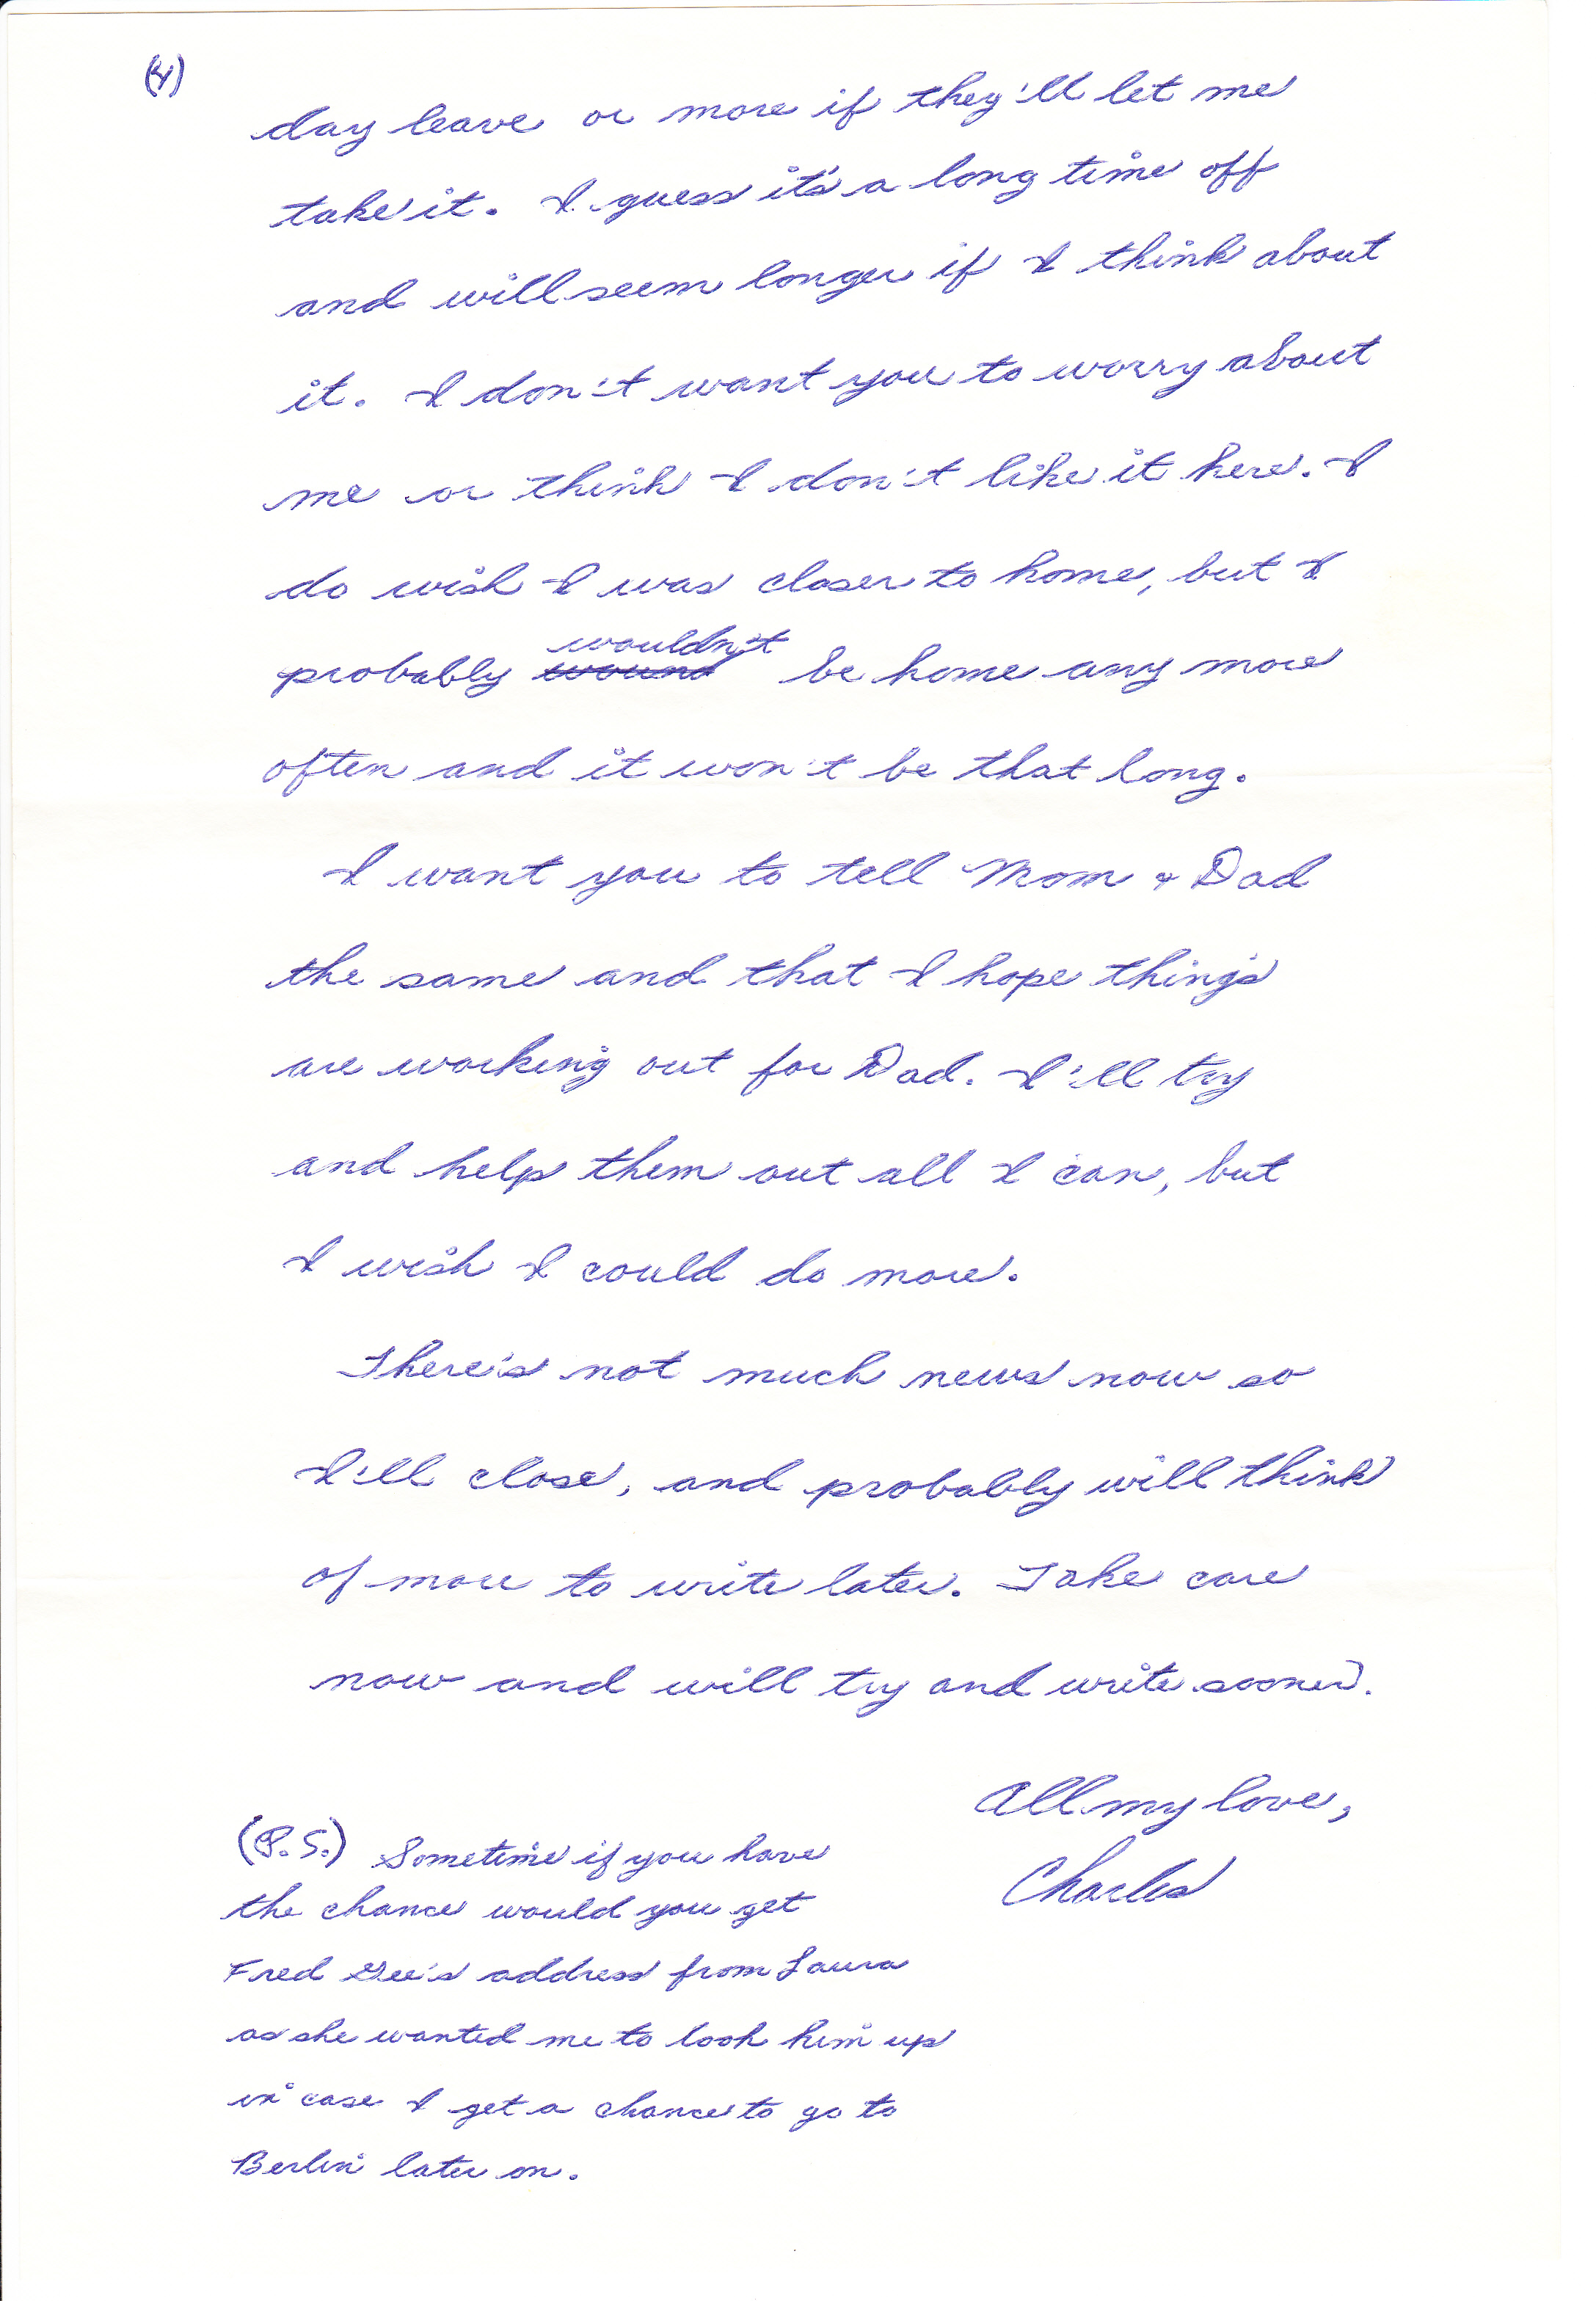 (4)
day leave or more if they'll let me
take it. I guess it's a long time off
and will seem longer if I think about
it. I don't want you to worry about
me or think I don't like it here. I
do wish I was closer to home, but I
wouldn't
probably ~~wound~~ be home any more
often and it won't be that long.
I want you to tell Mom & Dad
the same and that I hope things
are working out for Dad. I'll try
and help them out all I can, but
I wish I could do more.
There's not much news now so
I'll close, and probably will think
of more to write later. Take care
now and will try and write sooner.
All my love,
Charles
(P.S.) Sometime if you have
the chance would you get
Fred Gee's address from Laura
as she wanted me to look him up
in case I get a chance to go to
Berlin later on.